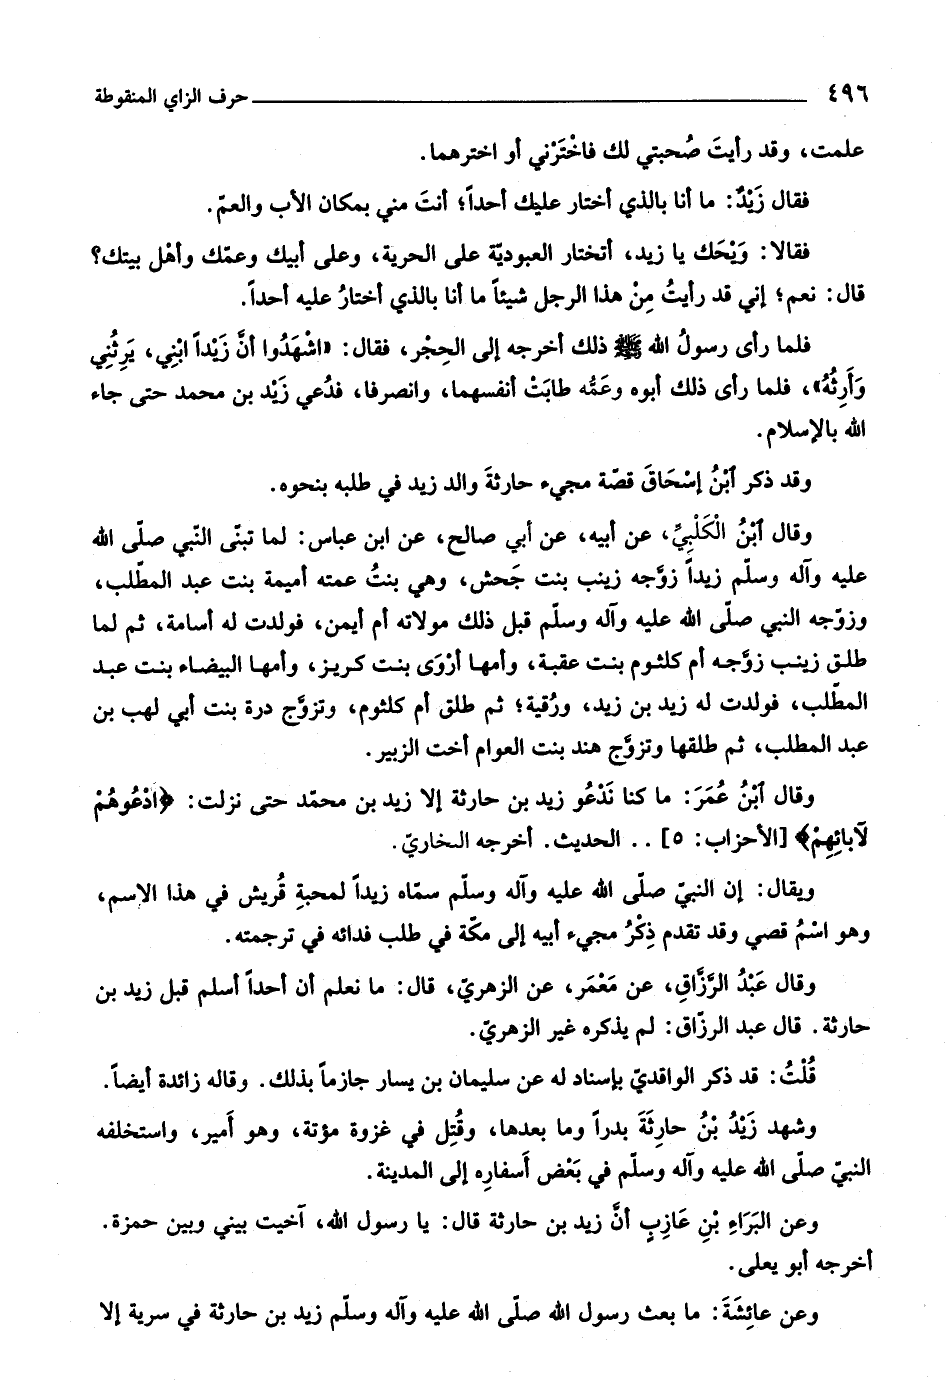 ٤٩٦ ــــــــــــــــــــ حرف الزاي المنقوطة
علمت، وقد رأيتَ صُحبتي لك فاخْتَرْني أو اخترهما.
فقال زَيْدٌ: ما أنا بالذي أختار عليك أحداً؛ أنتَ مني بمكان الأب والعمّ.
فقالا: وَيْحَك يا زيد، أتختار العبوديّة على الحرية، وعلى أبيك وعمّك وأهْل بيتك؟
قال: نعم؛ إني قد رأيتُ مِنْ هذا الرجل شيئاً ما أنا بالذي أختارُ عليه أحداً.
فلما رأى رسولُ الله ﷺ ذلك أخرجه إلى الحِجْر، فقال: «اشْهَدُوا أنَّ زَيْداً ابْنِي، يَرِثُنِي
وَأَرِثُهُ»، فلما رأى ذلك أبوه وعَمُّه طابَتْ أنفسهما، وانصرفا، فدُعي زَيْد بن محمد حتى جاء
الله بالإسلام.
وقد ذكر ٱبْنُ إسْحَاقَ قصّة مجيء حارثةَ والد زيد في طلبه بنحوه.
وقال ٱبْنُ الْكَلْبِيِّ، عن أبيه، عن أبي صالح، عن ابن عباس: لما تبنّى النّبي صلّى الله
عليه وآله وسلّم زيداً زوَّجه زينب بنت جَحش، وهي بنتُ عمته أميمة بنت عبد المطّلب،
وزوّجه النبي صلّى الله عليه وآله وسلّم قبل ذلك مولاته أم أيمن، فولدت له أسامة، ثم لما
طلق زينب زوَّجه أم كلثوم بنت عقبة، وأمها أرْوَى بنت كريز، وأمها البيضاء بنت عبد
المطّلب، فولدت له زيد بن زيد، ورُقية؛ ثم طلق أم كلثوم، وتزوَّج درة بنت أبي لهب بن
عبد المطلب، ثم طلقها وتزوَّج هند بنت العوام أخت الزبير.
وقال ٱبْنُ عُمَرَ: ما كنا نَدْعُو زيد بن حارثة إلا زيد بن محمّد حتى نزلت: ﴿ادْعُوهُمْ
لآبائِهِمْ﴾ [الأحزاب: ٥] .. الحديث. أخرجه البخاريّ.
ويقال: إن النبيّ صلّى الله عليه وآله وسلّم سمّاه زيداً لمحبةِ قُريش في هذا الاسم،
وهو اسْمُ قصي وقد تقدم ذِكْرُ مجيء أبيه إلى مكّة في طلب فدائه في ترجمته.
وقال عَبْدُ الرَّزَّاقِ، عن مَعْمَر، عن الزهريّ، قال: ما نعلم أن أحداً أسلم قبل زيد بن
حارثة. قال عبد الرزّاق: لم يذكره غير الزهريّ.
قُلْتُ: قد ذكر الواقديّ بإسناد له عن سليمان بن يسار جازماً بذلك. وقاله زائدة أيضاً.
وشهد زَيْدُ بْنُ حارِثَةَ بدراً وما بعدها، وقُتِل في غزوة مؤتة، وهو أَمير، واستخلفه
النبيّ صلّى الله عليه وآله وسلّم في بَعْض أَسفارِه إلى المدينة.
وعن البَرَاءِ بْنِ عَازِبٍ أنَّ زيد بن حارثة قال: يا رسول الله، آخيت بيني وبين حمزة.
أخرجه أبو يعلى.
وعن عائِشَةَ: ما بعث رسول الله صلّى الله عليه وآله وسلّم زيد بن حارثة في سرية إلا